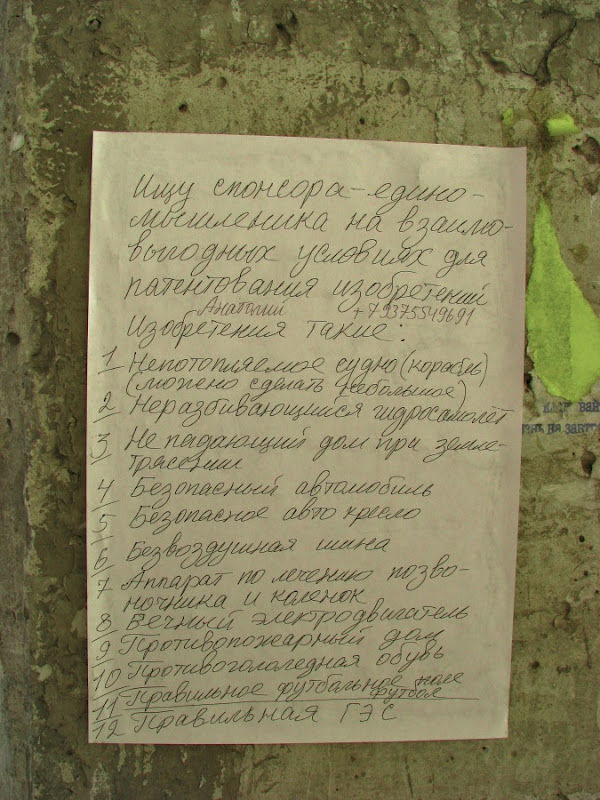 Ищу спонсора-едино-
мышленика на взаимо-
выгодных условиях для
патентования изобретений
Анатолий +79375549691
Изобретения такие:
1 Непотопляемое судно (корабль)
(можно сделать небольшое)
2 Неразбивающийся гидросамолёт
3 Не падающий дом при земле-
трясении
4 Безопасный автомобиль
5 Безопасное авто кресло
6 Безвоздушная шина
7 Аппарат по лечению позво-
ночника и коленок
8 Вечный электродвигатель
9 Противопожарный дом
10 Противогололедная обувь
11 Правильное футбольное поле
футбол
12 Правильная ГЭС
на завтр